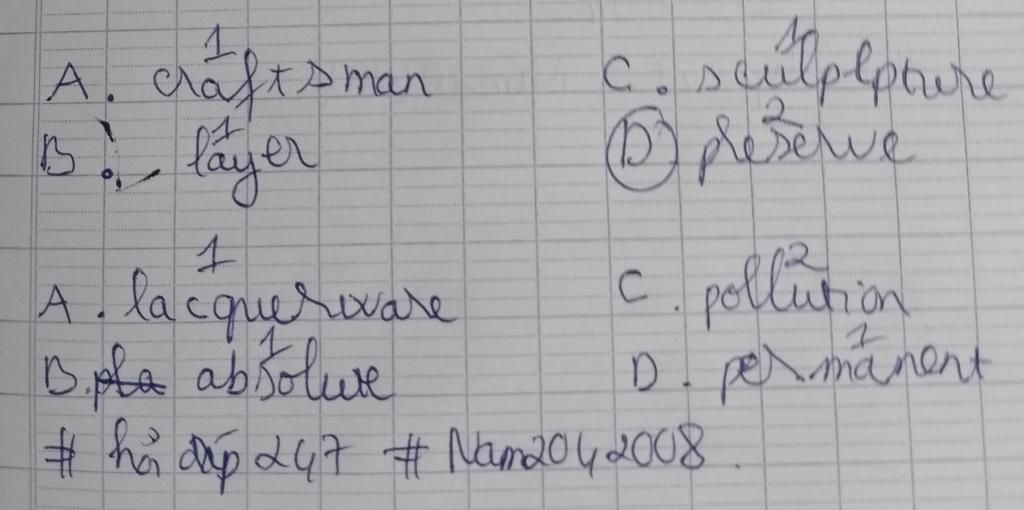 1 1
A. craftsman C. sculplpture
1 2
B. layer D preserve
1 2
A. lacquerware C. pollution
1 1
B. absolute D. permanent
# hỏi đáp 247 # Nam2042008.